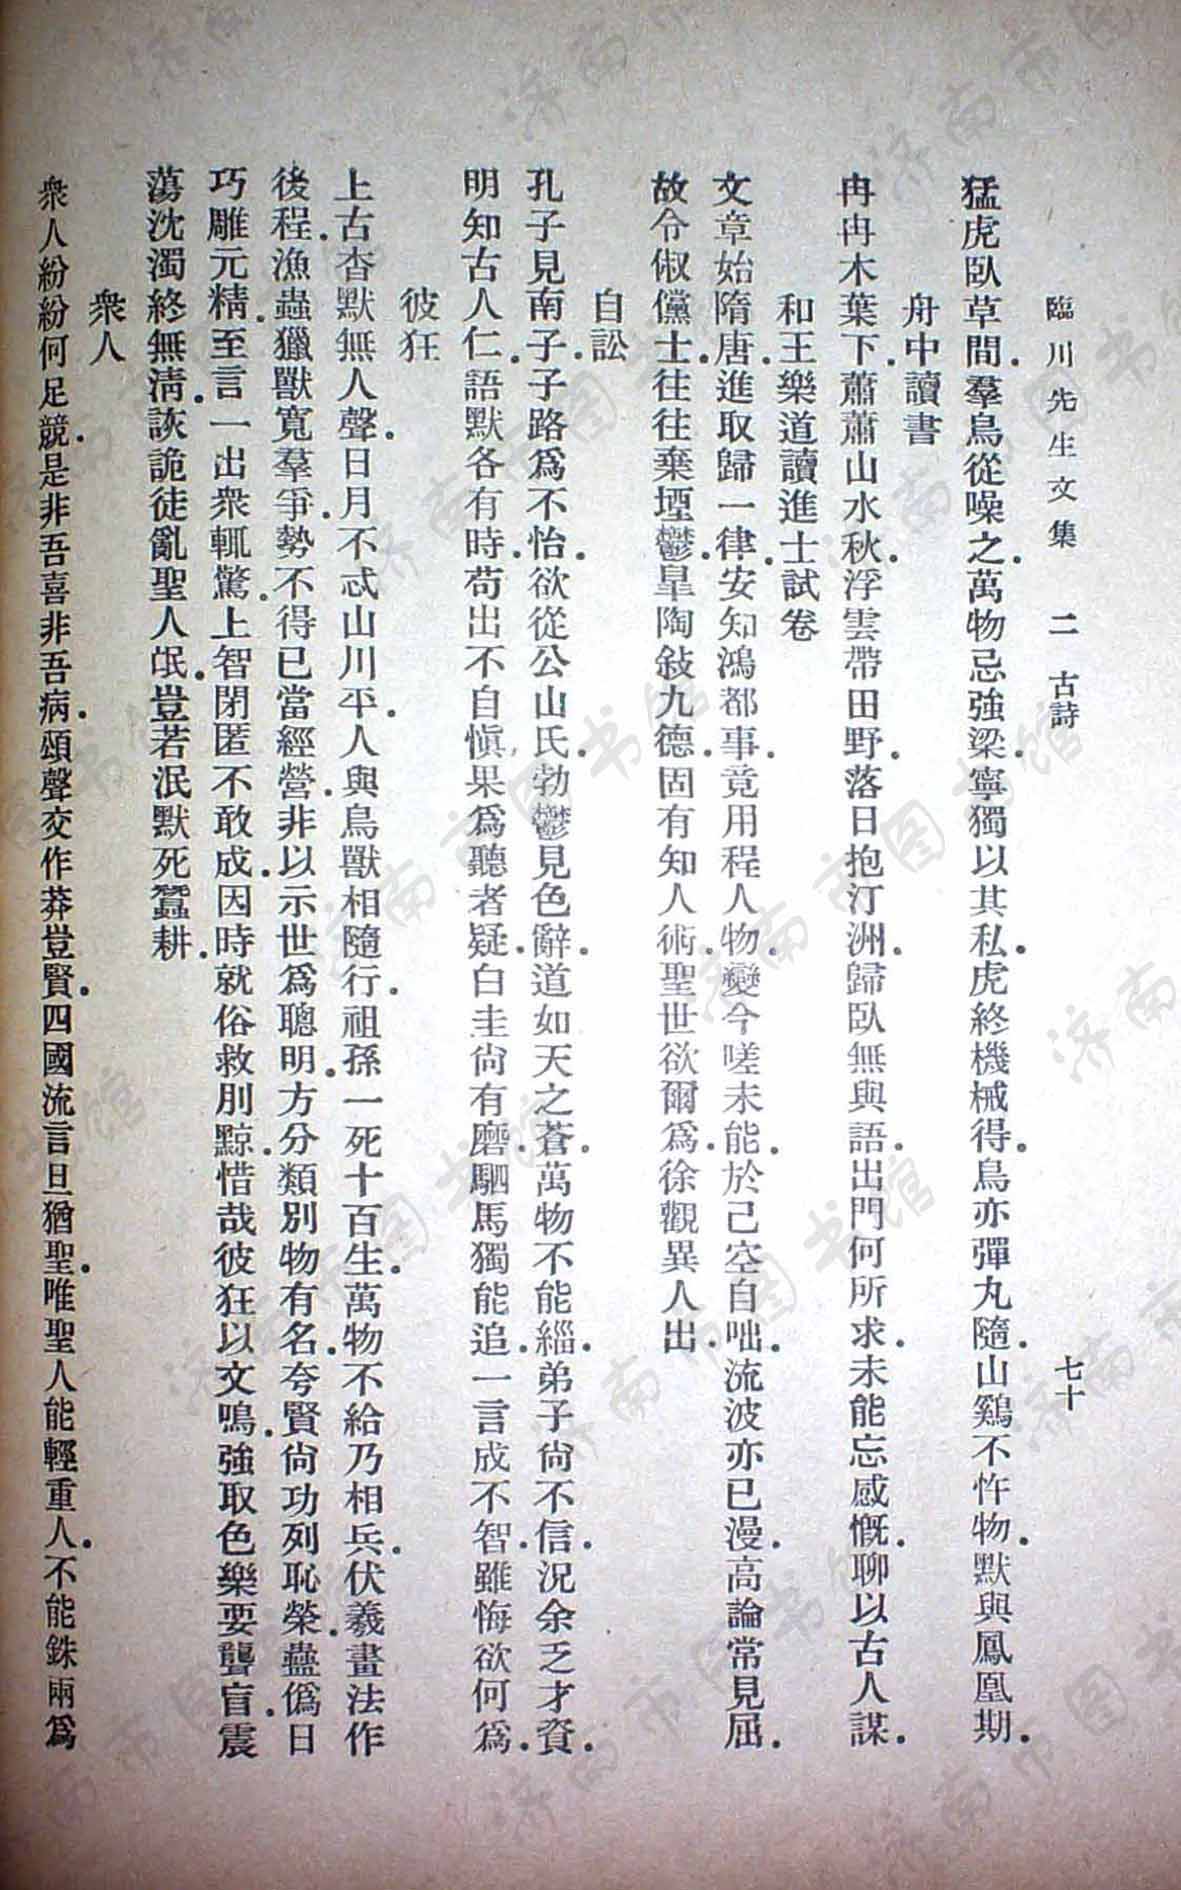 臨川先生文集 二 古詩 七十
猛虎臥草間.羣鳥從噪之.萬物忌強梁.寧獨以其私.虎終機械得.鳥亦彈丸隨.山鷄不忤物.默與鳳凰期.
舟中讀書
冉冉木葉下.蕭蕭山水秋.浮雲帶田野.落日抱汀洲.歸臥無與語.出門何所求.未能忘感慨.聊以古人謀.
和王樂道讀進士試卷
文章始隋唐.進取歸一律.安知鴻都事.竟用程人物.變今嗟未能.於己空自咄.流波亦已漫.高論常見屈.
故令俶儻士.往往棄堙鬱.臯陶敍九德.固有知人術.聖世欲爾爲.徐觀異人出.
自訟
孔子見南子.子路爲不怡.欲從公山氏.勃鬱見色辭.道如天之蒼.萬物不能緇.弟子尙不信.況余乏才資.
明知古人仁.語默各有時.苟出不自愼.果爲聽者疑.白圭尙有磨.駟馬獨能追.一言成不智.雖悔欲何爲.
彼狂
上古杳默無人聲.日月不忒山川平.人與鳥獸相隨行.祖孫一死十百生.萬物不給乃相兵.伏羲畫法作
後程.漁蟲獵獸寬羣爭.勢不得已當經營.非以示世爲聰明.方分類別物有名.夸賢尙功列恥榮.蠱僞日
巧雕元精.至言一出衆輒驚.上智閉匿不敢成.因時就俗救刖黥.惜哉彼狂以文鳴.強取色樂要聾盲.震
蕩沈濁終無淸.詼詭徒亂聖人氓.豈若泯默死蠶耕.
衆人
衆人紛紛何足競.是非吾喜非吾病.頌聲交作莽豈賢.四國流言旦猶聖.唯聖人能輕重人.不能銖兩爲
济南市图书馆